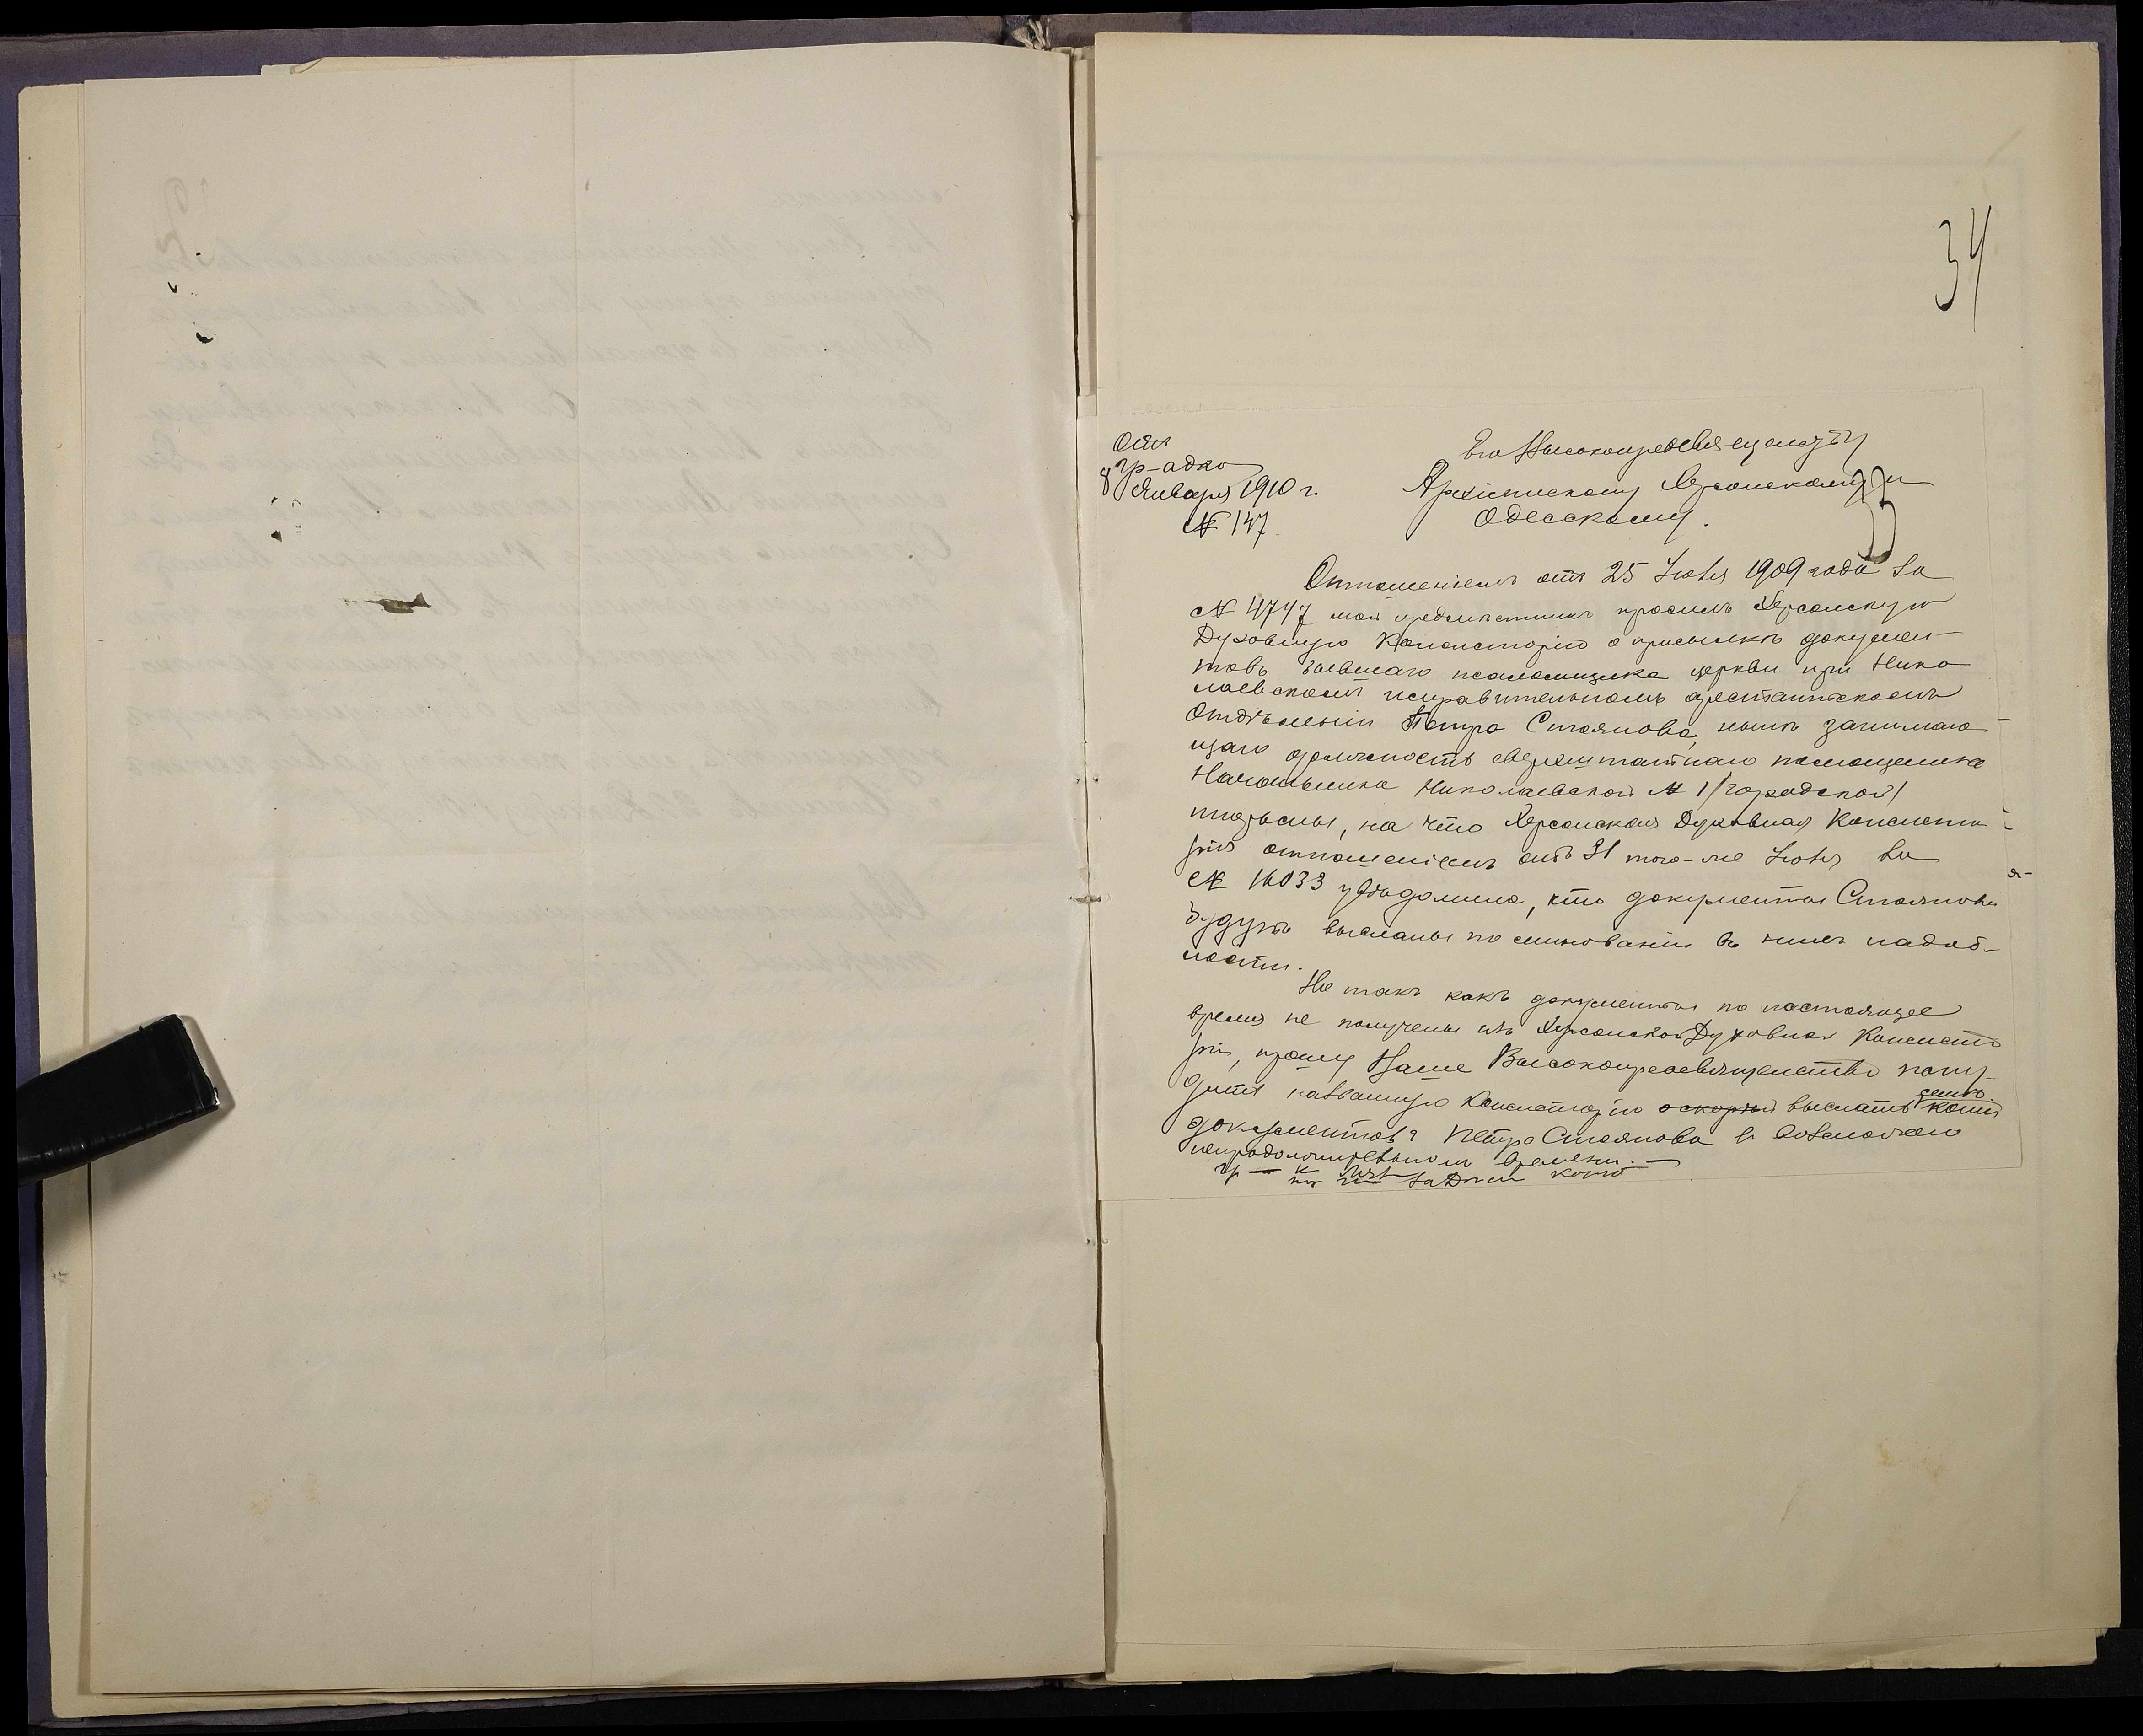 34
Отъ
гр-адко
8 Января 1910 г.
№ 147
Его Высокопреосвященству
Архіепископу Херсонскому и
Одесскому.
33
Отношеніемъ отъ 25 Іюля 1909 года за
№ 4747 мой предмѣстникъ просилъ Херсонскую
Духовную Консисторію о присылкѣ докумен-
товъ бывшаго псаломщика церкви при Нико
лаевскомъ исправительномъ арестантскомъ
Отдѣленіи Петра Стоянова, нынѣ занимаю-
щаго должность сверхштатнаго помощника
Начальника Николаевской № 1 /городской/
тюрьмы, на что Херсонская Духовная Консисто-
рія отношеніемъ отъ 31 того-же Іюля за
№ 16033 увѣдомила, что документы Стоянова
будутъ высланы по минованіи въ нихъ надоб-
ности.
Но такъ какъ документы по настоящее
время не получены изъ Херсонской Духовной Консисто
ріи, прошу Ваше Высокопреосвященство пону-
дить названную Консисторію о скорый выслать копіи
документовъ Петра Стоянова въ возможно
непродолжительномъ времени.